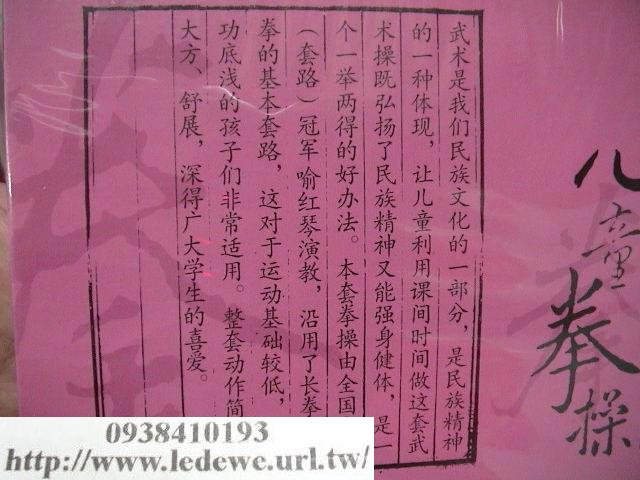 儿童拳操
武术是我们民族文化的一部分，是民族精神
的一种体现，让儿童利用课间时间做这套武
术操既弘扬了民族精神又能强身健体，是一
个一举两得的好办法。本套拳操由全国
（套路）冠军喻红琴演教，沿用了长拳
拳的基本套路，这对于运动基础较低，
功底浅的孩子们非常适用。整套动作简
大方、舒展，深得广大学生的喜爱。
0938410193
http://www.ledewe.url.tw/